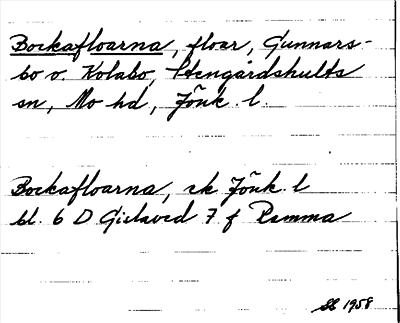 Bockafloarna, floar, Gunnars-
bo o. Kolabo, Stengårdshults
sn, Mo hd, Jönk. l.
Bockafloarna, ek Jönk. l
bl. 6 D Gislaved 7 f Remma
1958